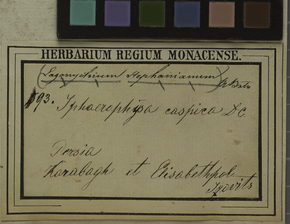 HERBARIUM REGIUM MONACENSE.
Lagonychium Stephanianum
93. Sphaerophysa caspica DC
Persia
Karabagh et Elisabethpol.
Szovits